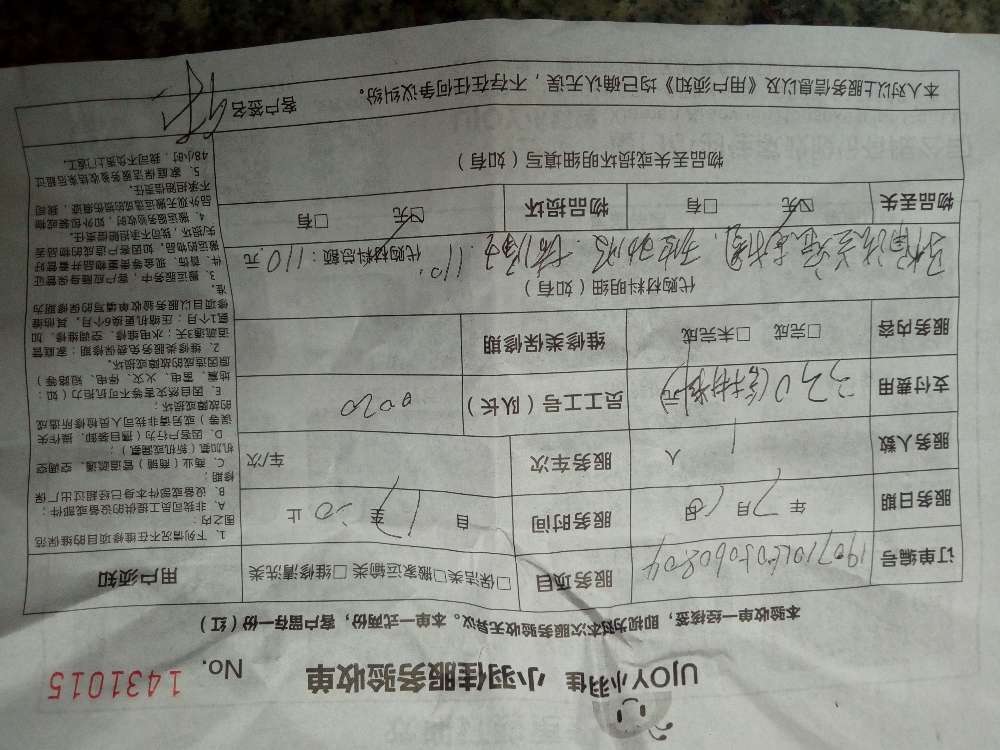 UJOY小羽佳 小羽佳服务验收单 No. 1431015
本验收单一经核签，即视为对本次服务验收无异议。本单一式两份，客户留存一份（红）
订单编号
服务项目 □保洁类 □搬家运输类 □维修清洗类
用户须知
服务日期 年 7月 日
服务时间 自 至 止
服务人数 1 人
服务车次 车/次
支付费用 330 元
员工工号（队长） 0020
服务内容 □完成 □未完成
维修类保修期
代购材料明细（如有）
110. 代购材料总额：110元
物品丢失 □有 ☑无
物品损坏 □有 ☑无
物品丢失或损坏明细填写（如有）
本人对以上服务信息以及《用户须知》均已确认无误，不存在任何争议纠纷。 客户签名
1. 下列情况不在维修项目的维保范
围之内：
A、非我司员工提供的设备或部件；
B、设备或部件本身已经超过出厂保
修期；
C、商业（商铺）管道疏通、空调空
机加氟（新机或漏氟）；
D、因客户行为（擅自装卸、操作失
误等）或另请非我司人员检修所造成
的故障或损坏；
E、因自然灾害等不可抗力（如：
地震、雷电、火灾、停电、短路等）
原因造成的故障或损坏。
2、维修类服务免费保修期：家庭管
道疏通3天；水电维修、空调维修、加
氟1个月；压缩机更换6个月，其他维
修项目以服务验收单填写的保修期为
准。
3、搬运服务中，客户应随身保管证
件、首饰、现金等贵重物品并看管好
搬运的物品，如因客户造成的物品丢
失损坏，我司不承担赔偿责任。
4、搬运服务验收时，如外包装或物
品外观无搬运造成的损伤痕迹，我司
不承担赔偿责任。
5、家庭保洁服务验收结束后超过
48小时，我司不负责上门返工。